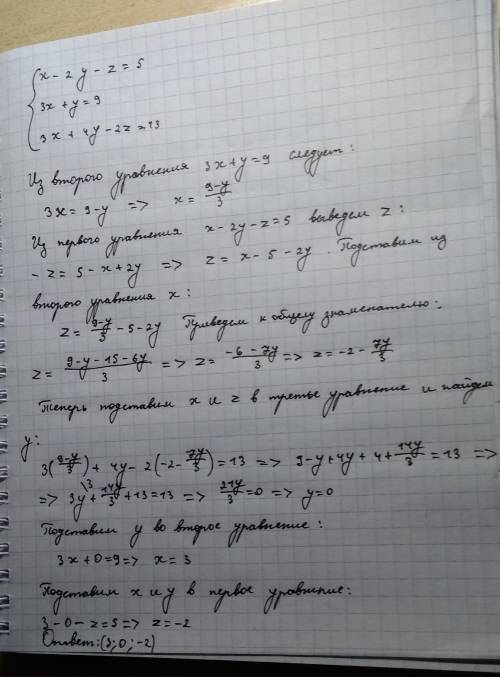 x - 2y - z = 5
3x + y = 9
3x + 4y - 2z = 13
Из второго уравнения 3x + y = 9 следует:
3x = 9 - y => x = (9-y)/3
Из первого уравнения x - 2y - z = 5 выведем z:
- z = 5 - x + 2y => z = x - 5 - 2y. Подставим из
второго уравнения x:
z = (9-y)/3 - 5 - 2y Приведем к общему знаменателю:
z = (9-y-15-6y)/3 => z = (-6-7y)/3 => z = -2 - 7y/3
Теперь подставим x и z в третье уравнение и найдем
y:
3((9-y)/3) + 4y - 2(-2 - 7y/3) = 13 => 9 - y + 4y + 4 + 14y/3 = 13 =>
=> 3y\3 + 14y/3 + 13 = 13 => 21y/3 = 0 => y = 0
Подставим y во второе уравнение:
3x + 0 = 9 => x = 3
Подставим x и y в первое уравнение:
3 - 0 - z = 5 => z = -2
Ответ: (3; 0; -2)